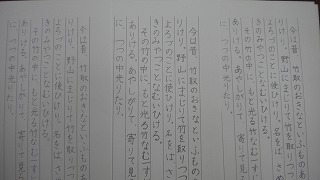 今は昔 竹取のおきなといふものあ
りけり。野山にまじりて竹を取りつ
よろづのことに使ひけり。名をば、さ
きのみやつことなむいひける。
その竹の中に、もと光る竹なむ一す
ありける。あやしがりて、寄りて見
に、つつの中光りたり。
今は昔 竹取のおきなといふものあ
りけり。野山にまじりて竹を取りつ
よろづのことに使ひけり。名をば、さ
きのみやつことなむいひける。
その竹の中に、もと光る竹なむ一す
ありける。あやしがりて、寄りて見
に、つつの中光りたり。
今は昔 竹取のおきなといふものあ
りけり。野山にまじりて竹を取りつ
よろづのことに使ひけり。名をば、さ
きのみやつことなむいひける。
その竹の中に、もと光る竹なむ一す
ありける。あやしがりて、寄りて見
に、つつの中光りたり。